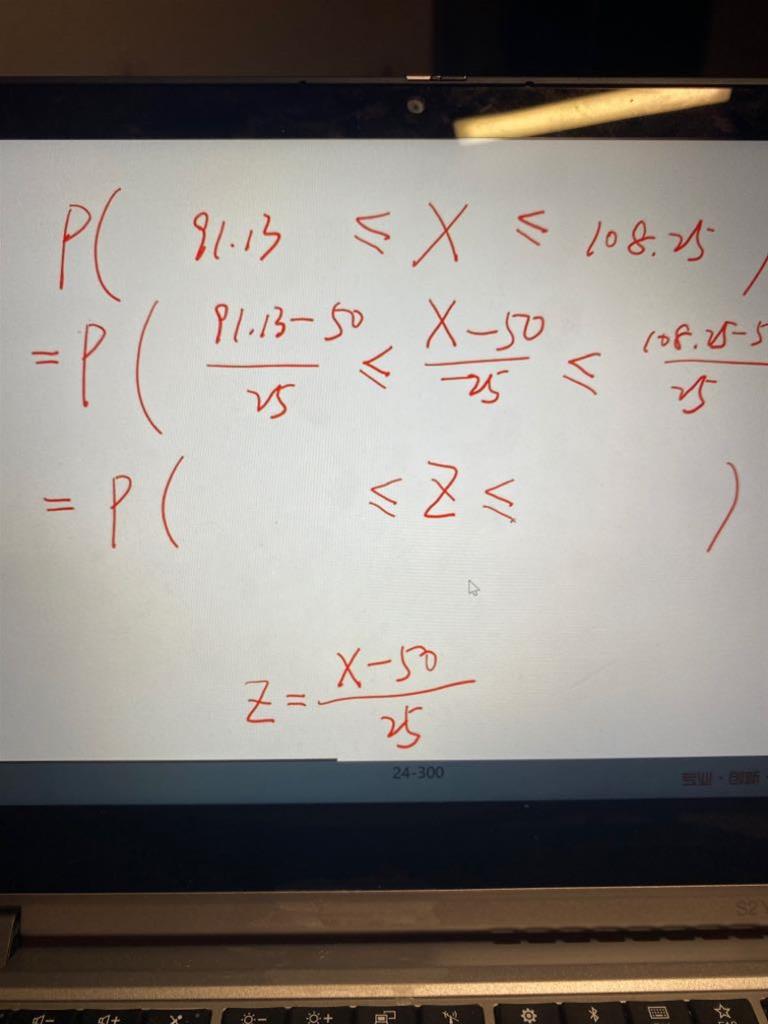 P( 91.13 ≤ X ≤ 108.25 )
= P( (91.13-50)/25 ≤ (X-50)/25 ≤ (108.25-5/25
= P( ≤ Z ≤ )
Z = (X-50)/25
24-300